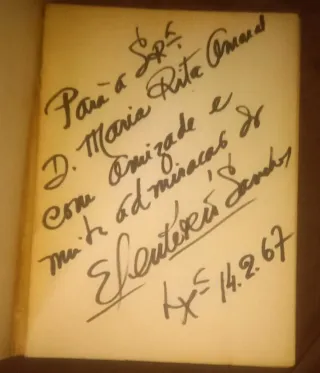 Para a Sr.ª
D. Maria Rita Amaral
com amizade e
muita admiração do
Eleutério Sanches
Lx.ª 14.2.67